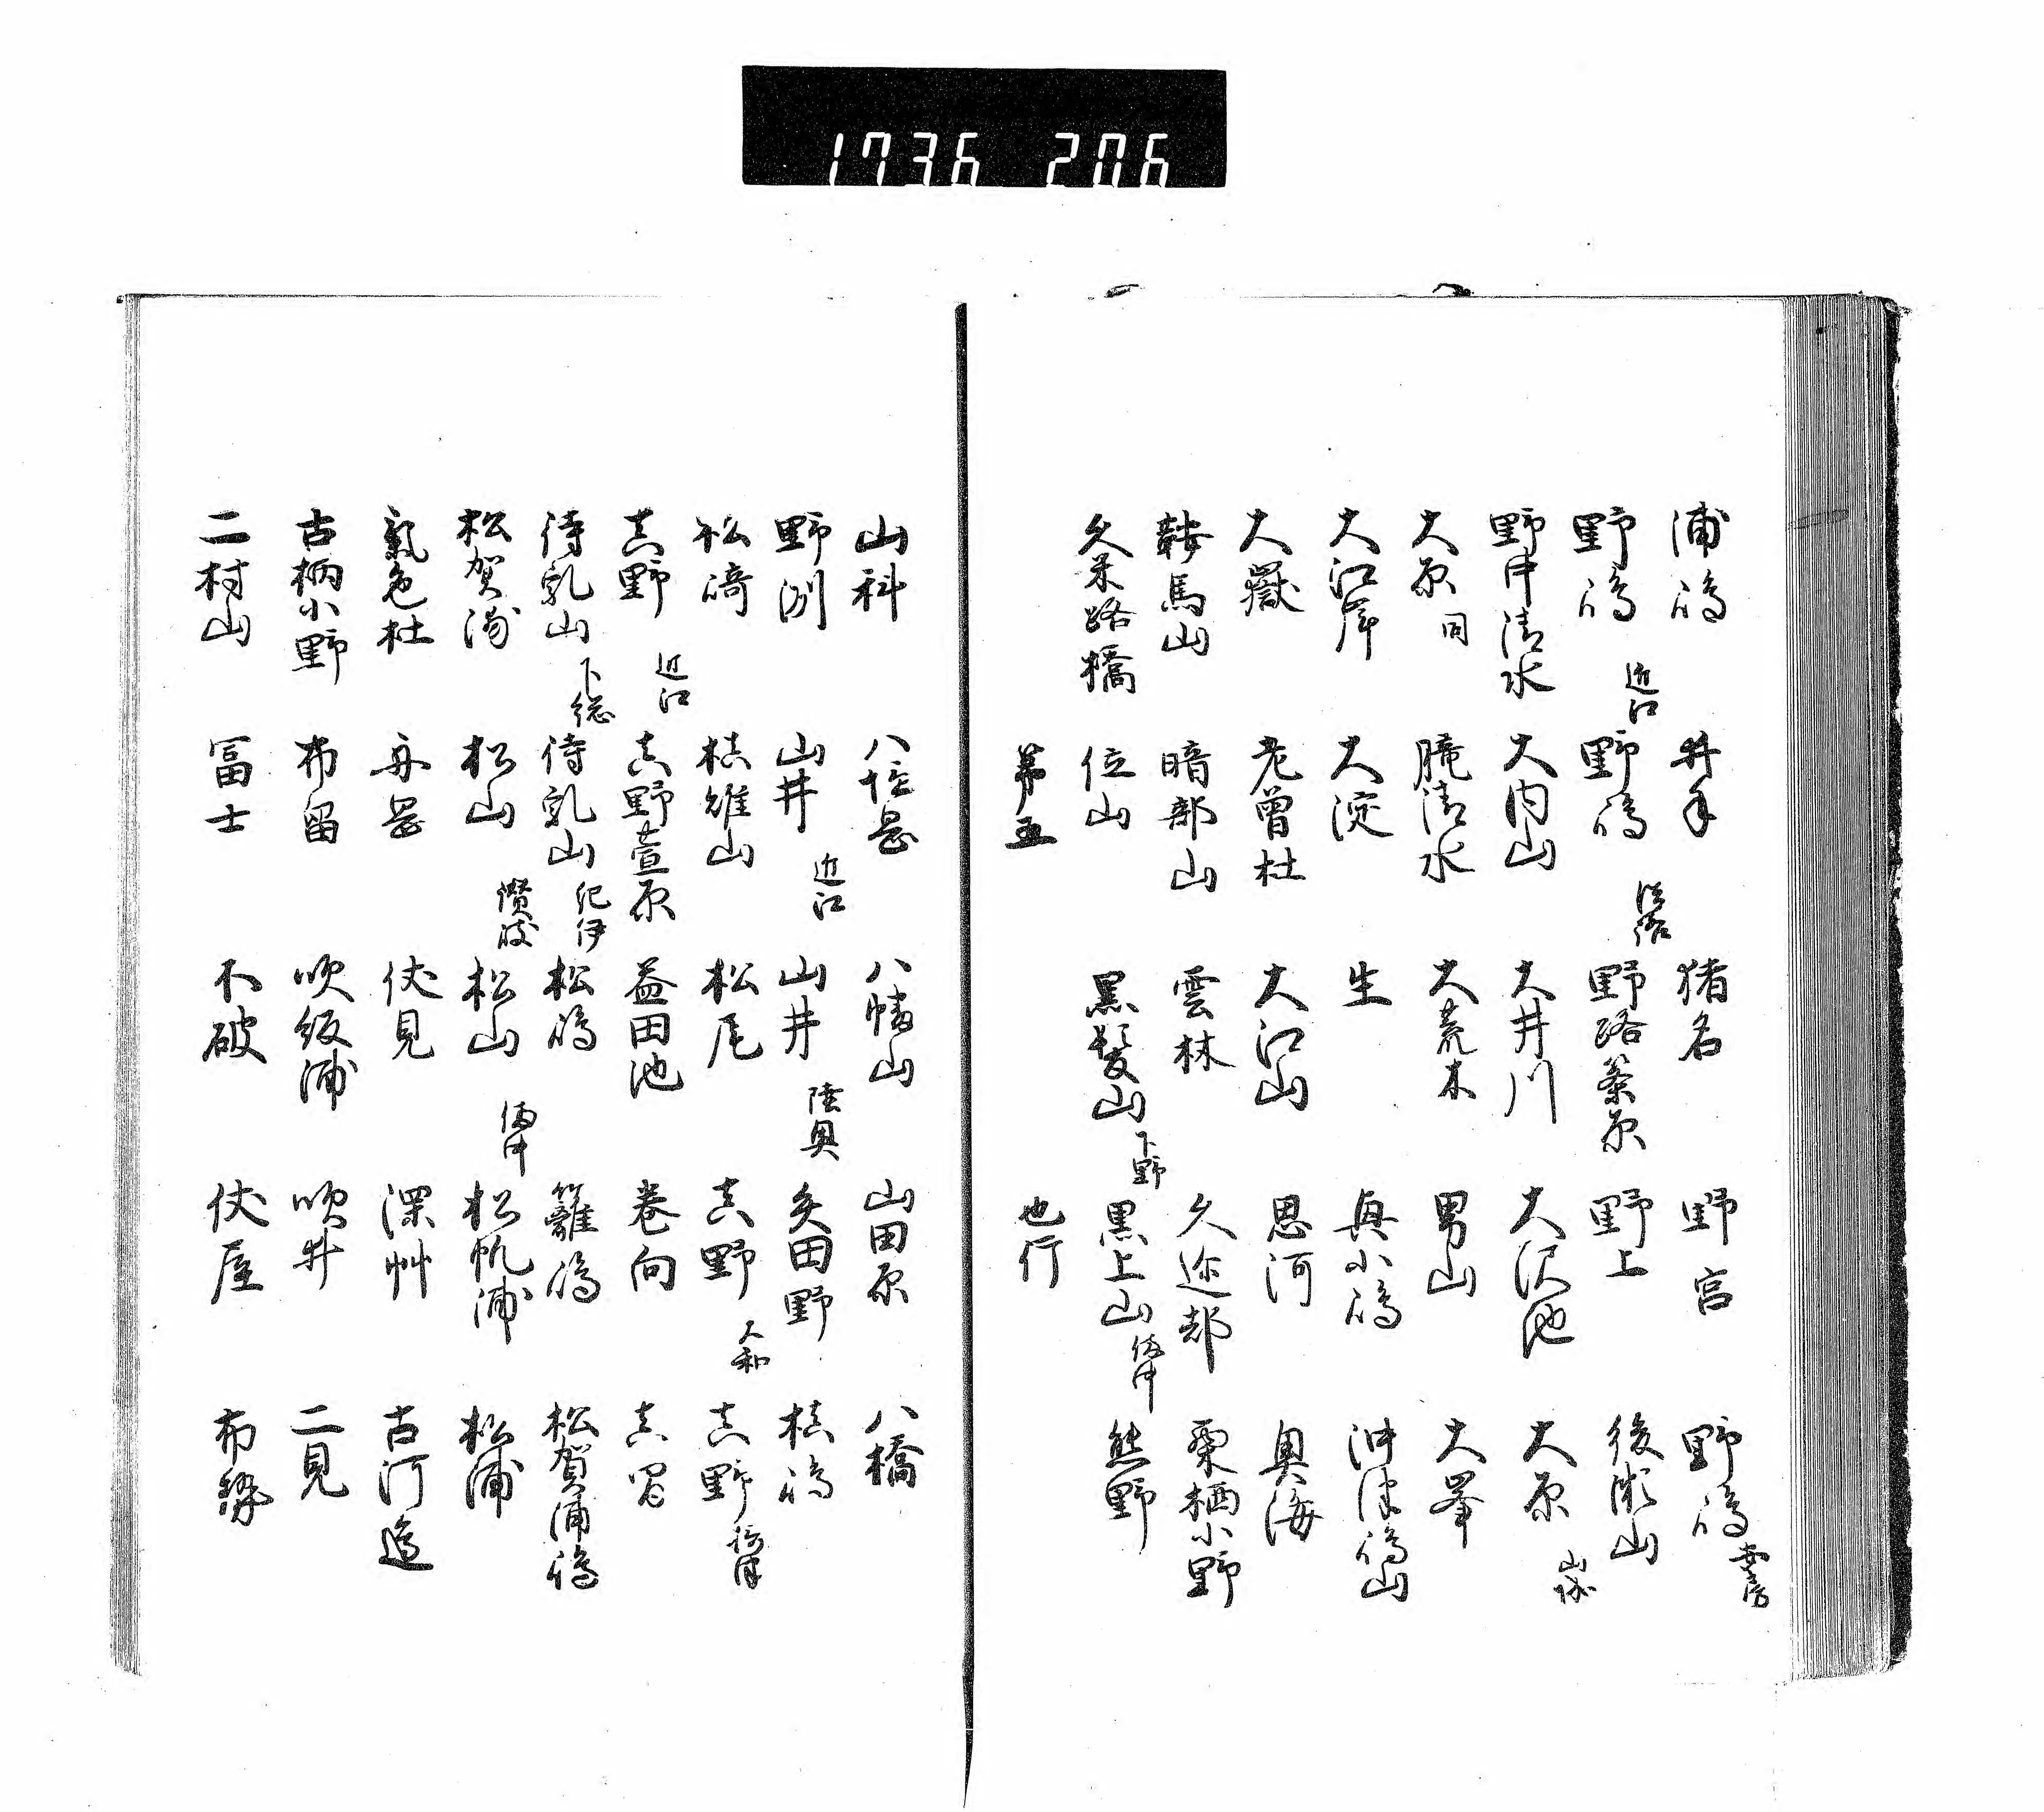 1736 206
浦嶋 井手 猪名 野宮 野嶋 安房
野嶋 近江 野嶋 淡路 野路篠原 野上 後瀬山
野中清水 大内山 大井川 大沢池 大原 山城
大原 同 朧清水 大荒木 男山 大峯
大江岸 大淀 生 奥小嶋 沖津嶋山
大嶽 老曽杜 大江山 思河 奥海
鞍馬山 暗部山 雲林 久迩都 栗栖小野
久米路橋 位山 黒髪山 下野 黒上山 備中 熊野
第五 也行
山科 八塩岳 八幡山 山田原 八橋
野洲 山井 近江 山井 陸奥 矢田野 槙嶋
松崎 槙雄山 松尾 真野 大和 真野 摂津
真野 近江 真野萱原 益田池 巻向 真
待乳山 下総 待乳山 紀伊 松嶋 籬嶋 松賀浦嶋
松賀浦 松山 讃岐 松山 備中 松帆浦 松浦
気色杜 舟岳 伏見 深艸 古河邊
古柄小野 布留 吹飯浦 吹井 二見
二村山 冨士 不破 伏屋 布勢